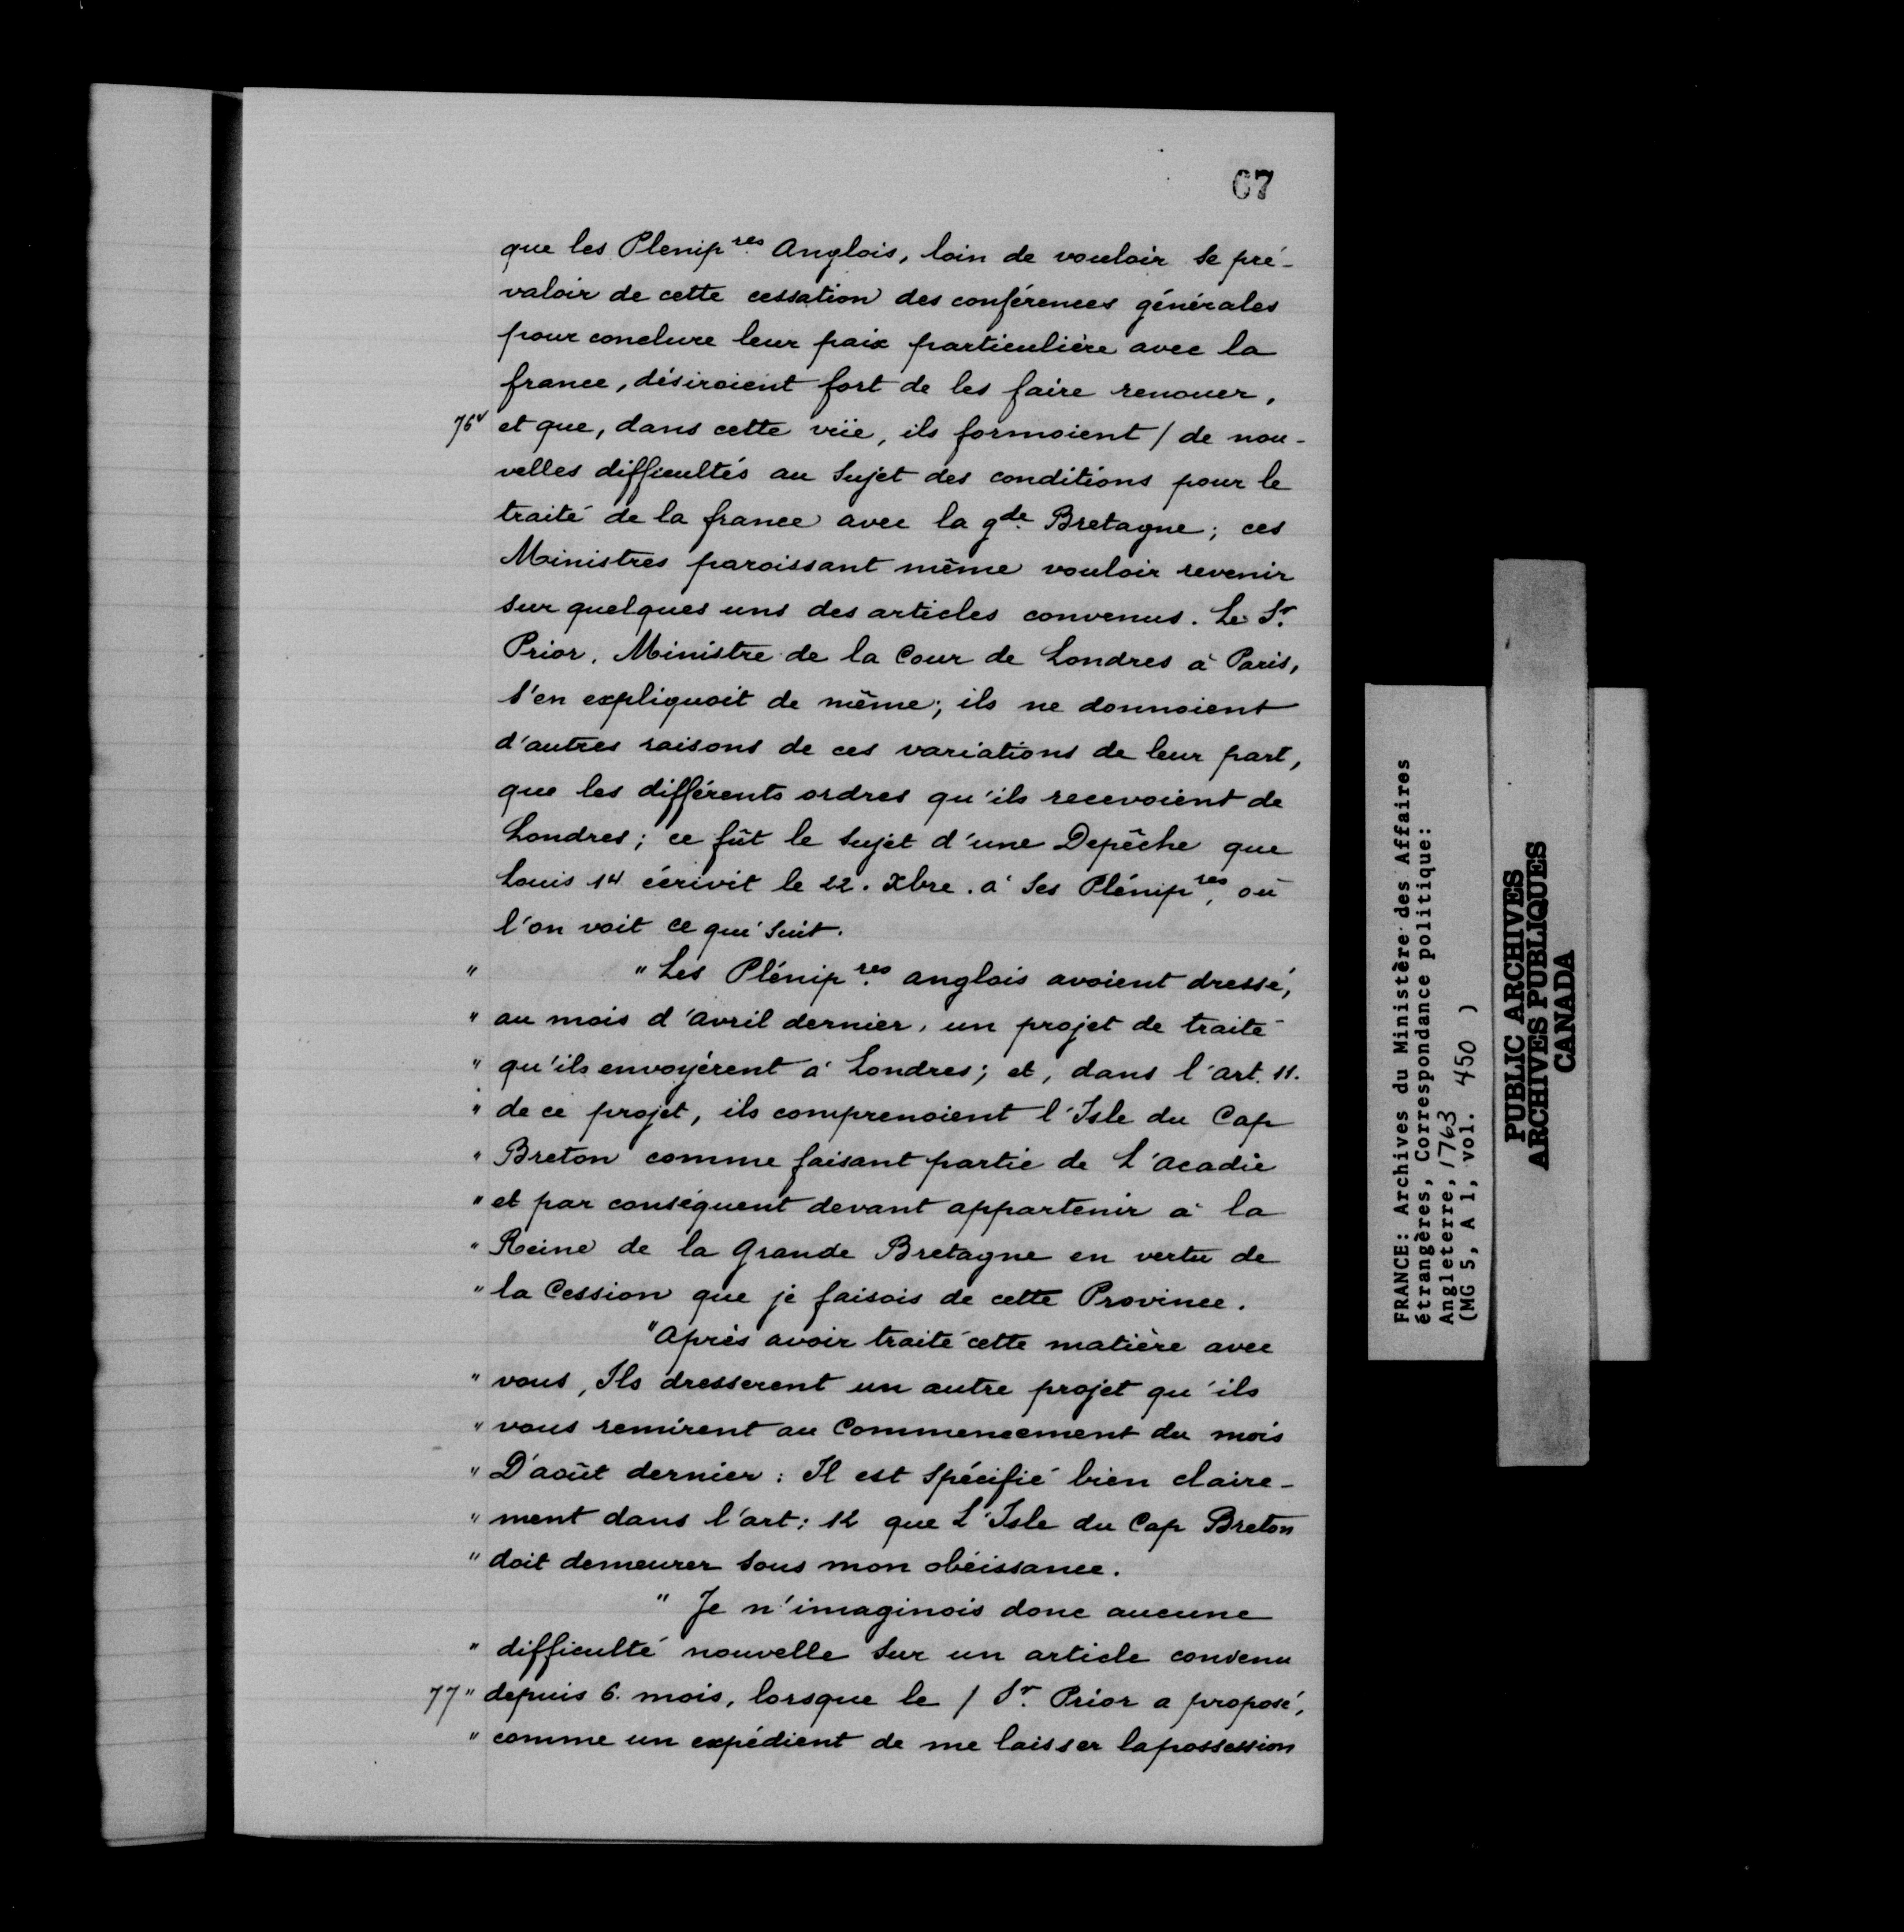 67
que les Plenip.res Anglois, loin de vouloir se pré-
valoir de cette cessation des conférences générales
pour conclure leur paix particulière avec la
france, désiroient fort de les faire renouer,
76v et que, dans cette vüe, ils formoient / de nou-
velles difficultés au Sujet des conditions pour le
traité de la france avec la gde. Bretagne; ces
Ministres paroissant même vouloir revenir
sur quelques uns des articles convenus. Le Sr.
Prior, Ministre de la Cour de Londres à Paris,
s'en expliquoit de même; ils ne donnoient
d'autres raisons de ces variations de leur part,
que les différents ordres qu'ils recevoient de
Londres; ce fût le Sujet d'une Depêche que
Louis 14 écrivit le 22. Xbre. à Ses Plénip.res, où
l'on voit ce qui Suit.
" "Les Plénip.res anglois avoient dressé,
" au mois d'avril dernier, un projet de traité
" qu'ils envoyérent à Londres; et, dans l'art. 11.
" de ce projet, ils comprenoient l'Isle du Cap
" Breton comme faisant partie de L'acadie
" et par conséquent devant appartenir à la
" Reine de la Grande Bretagne en vertu de
" la Cession que je faisois de cette Province.
"Après avoir traité cette matière avec
" vous, Ils dresserent un autre projet qu'ils
" vous remirent au Commencement du mois
" D'août dernier: Il est Spécifié bien claire-
" ment dans l'art: 12 que L'Isle du Cap Breton
" doit demeurer Sous mon obéissance.
" Je n'imaginois donc aucune
" difficulté nouvelle Sur un article convenu
77 " depuis 6. mois, lorsque le / Sr. Prior a proposé,
" comme un expédient de me laisser la possession
FRANCE: Archives du Ministère des Affaires
étrangères, Correspondance politique:
Angleterre, 1763
(MG 5, A 1, vol. 450 )
PUBLIC ARCHIVES
ARCHIVES PUBLIQUES
CANADA